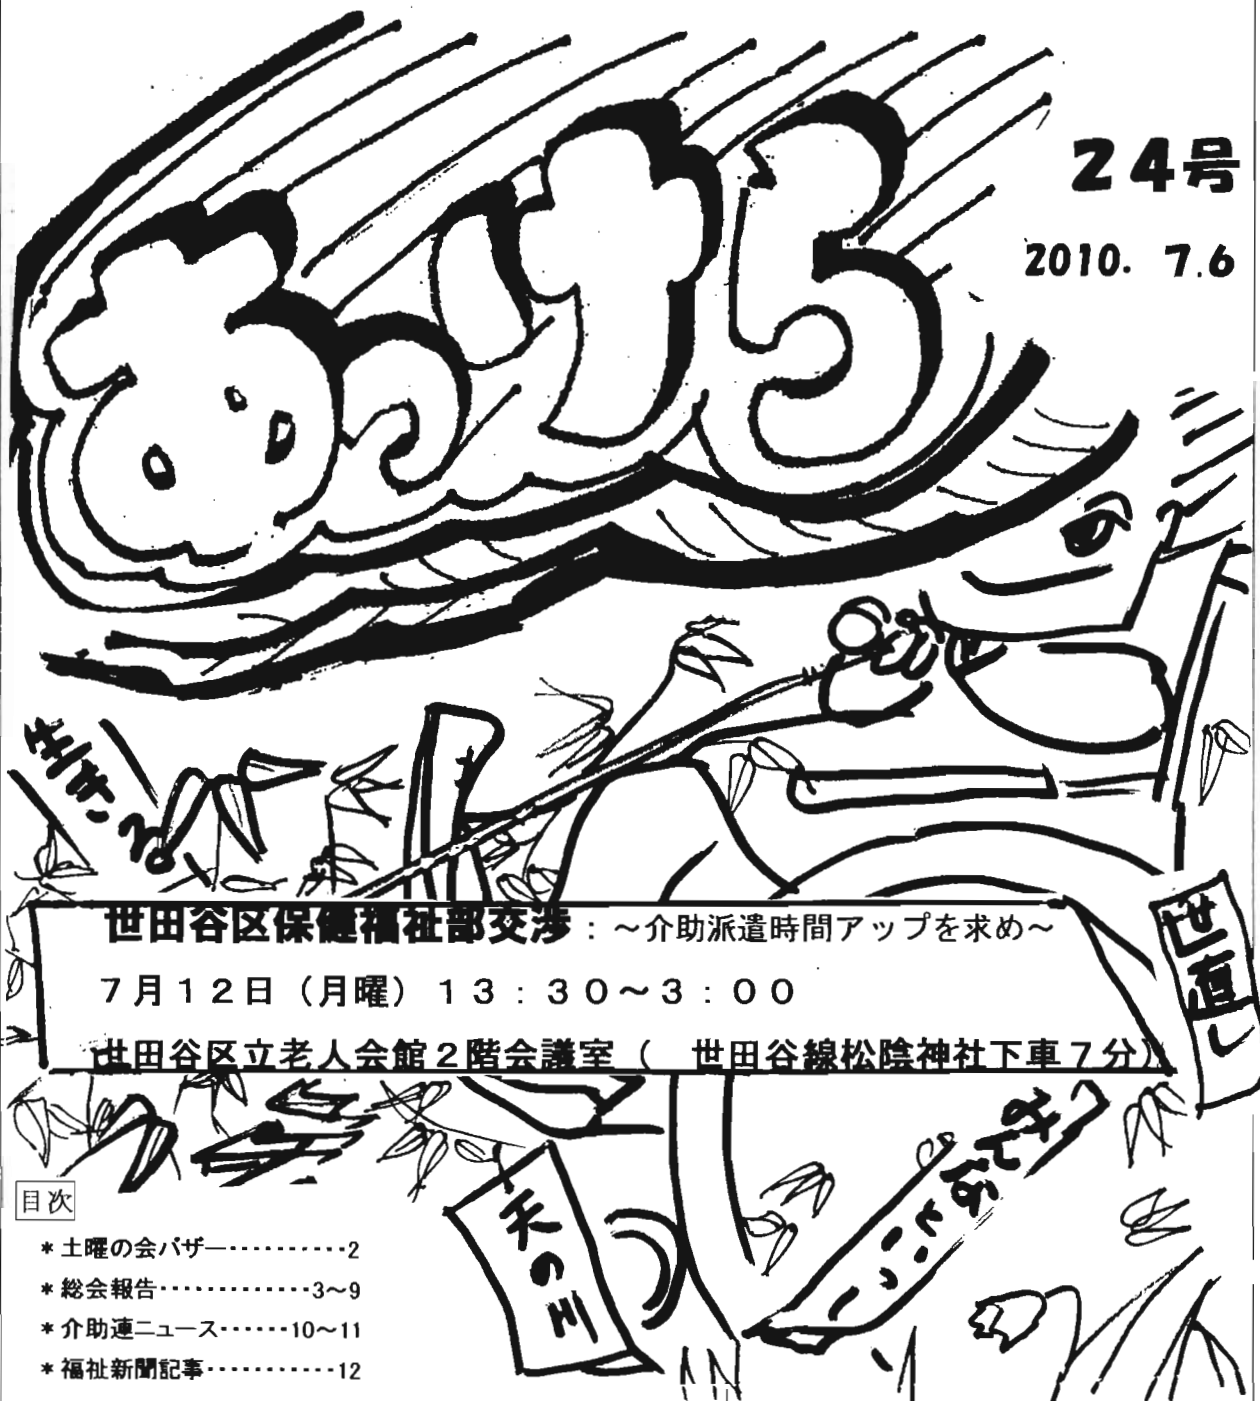 あっけら
24号
2010. 7.6
生きる
世田谷区保健福祉部交渉：～介助派遣時間アップを求め～
7月12日（月曜）13：30～3：00
世田谷区立老人会館2階会議室（　世田谷線松陰神社下車7分）
世直し
みんなといっしょ
天の川
目次
＊土曜の会バザー‥‥‥‥‥2
＊総会報告‥‥‥‥‥‥3～9
＊介助連ニュース‥‥‥10～11
＊福祉新聞記事‥‥‥‥‥12